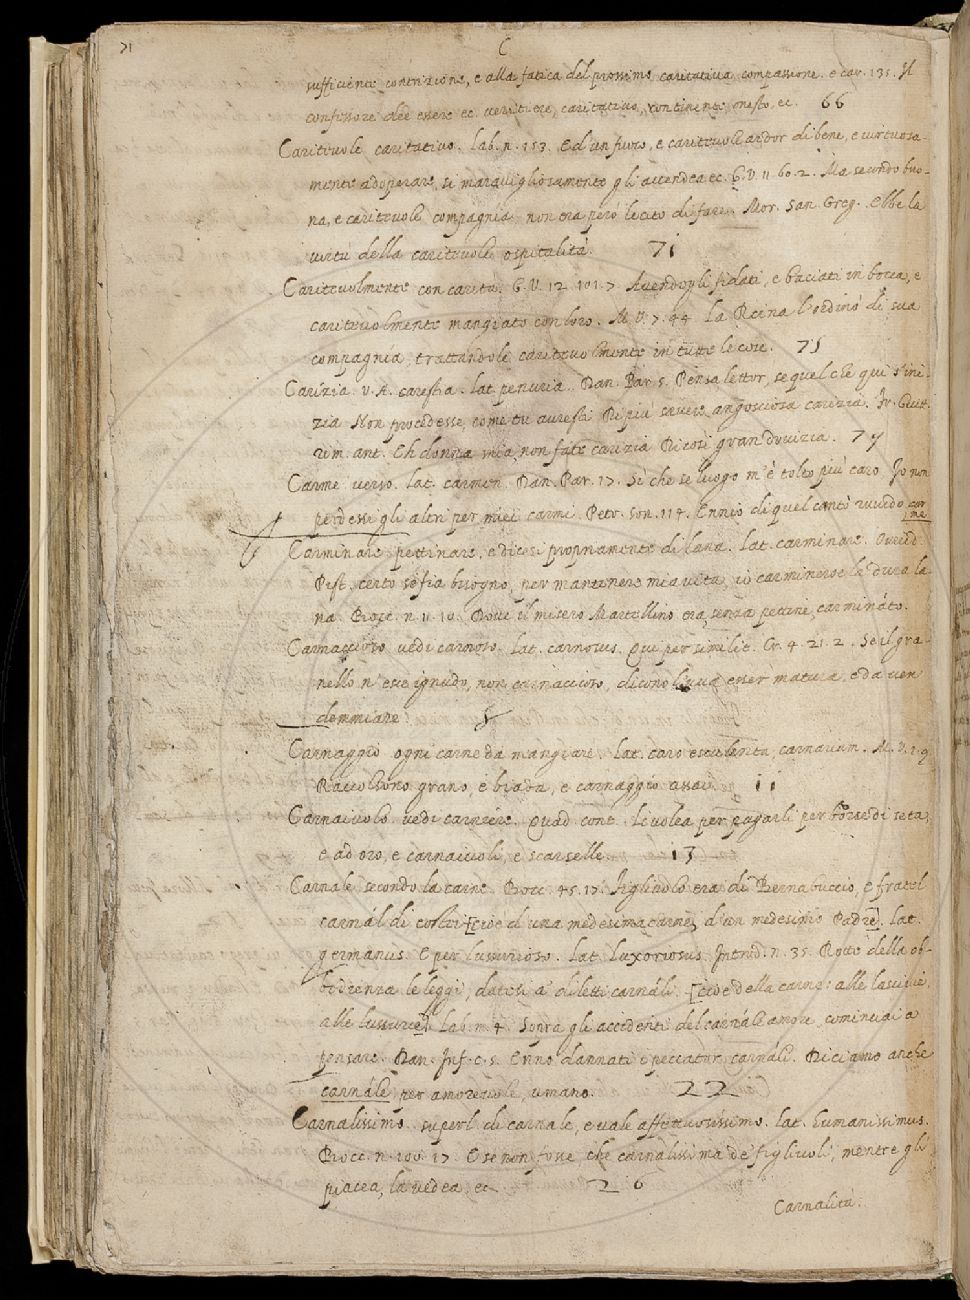 71
C
sufficiente contrizione, e alla fatica del prossimo caritativa compassione. e car. 131. Il
confessore dee essere ec. veritiere, caritativo, continente, onesto, ec. 66
Caritevole caritativo. Lab. n. 153. Ed un fuoco, e caritevole ardor di bene, e virtuosa-
mente adoperare, sì maravigliosamente gli accendea ec. G. V. 11. 60. 2. Ma secondo buo-
na, e caritevole compagnia non era però lecito di fare. Mor. San Greg. Ebbe la
virtù della caritevole ospitalità. 71
Caritevolmente con carità. G. V. 12. 101. 7 Avendogli fidati, e baciati in bocca, e
caritevolmente mangiato con loro. M. V. 7. 44 la Reina l'ordinò di sua
compagnia, trattandole caritevolmente in tutte le cose. 75
Carizia. V. A. carestia. lat. penuria. Dan. Par. 5. Pensa lettor, se quel che qui s'ini-
zia Non procedesse, come tu avresti Di più savere angosciosa carizia. Fr. Guitt.
rim. ant. Eh donna mia, non fate carizia Di così gran divizia. 79
Carme verso. lat. carmen. Dan. Par. 17. Sì che se luogo m'è tolto più caro Io non
perdessi gli altri per miei carmi. Petr. son. 114. Ennio di quel cantò ruvido car
me
Carminare pettinare, e dicesi propriamente di lana. Lat. carminare. Ovvid.
Pist. certo s'e' fia bisogno, per mantenere mia vita, io carminerò la dura la-
na. Bocc. n. 11. 10. Dove il misero Martellino era, senza pettine, carminato.
Carnaccioso vedi carnoso. lat. carnosus. Qui per similit. Cr. 4. 21. 2. Se il gra-
nello n'esce ignudo, non carnaccioso, dicono l'uva esser matura, e da ven
demmiare. 8
Carnaggio ogni carne da mangiare. Lat. caro esculenta, carnarium. M. V. 1. 9
Raccolsono grano, e biada, e carnaggio assai. 11
Carnaiuolo vedi carniere. Quad. cont. Le volea per pagarli per borse di seta,
e ad oro, e carnaiuoli, e scarselle. 13
Carnale, secondo la carne. Bocc. 45. 17. Figliuolo era di Bernabuccio, e fratel
carnál di costei [cioè d'una medesima carne, d'un medesimo Padre]. Lat.
germanus. E per lussurioso. Lat. luxoriosus. Introd. n. 35. Rotte della ob-
bidienza le leggi, datesi a' diletti carnáli. [cioè della carne: alle lascivie,
alle lussurie]. Lab. n. 4. Sopra gli accidenti del carnále amore cominciai a
pensare. Dan. Inf. c. 5. Enno dannati i peccator carnáli. Diciamo anche
carnále per amorevole, umano. 22
Carnalissimo. superl. di carnale, e vale affettuosissimo. Lat. humanissimus.
Bocc. n. 100. 17 E se non fosse che carnalissima de' figliuoli, mentre gli
piacea, la vedea, ec. 26
Carnalità.